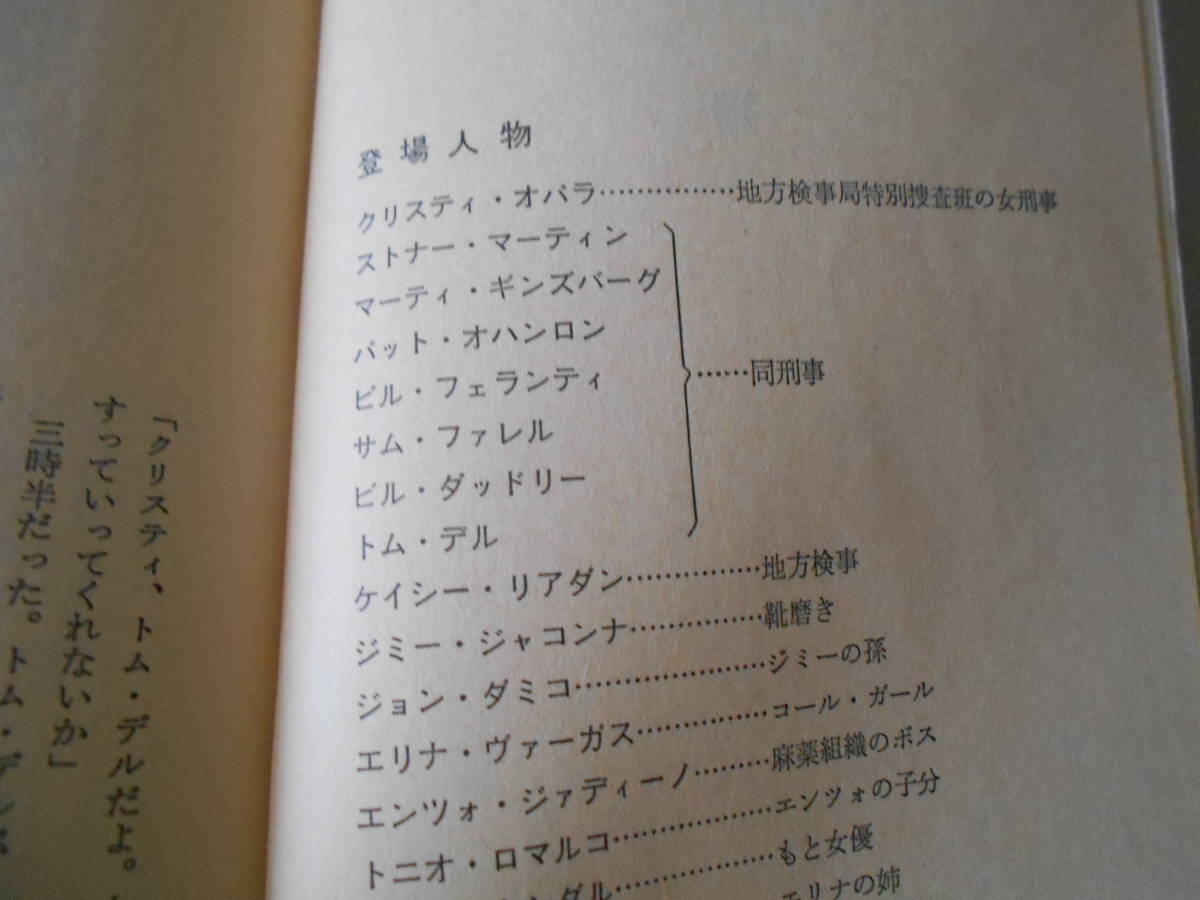 登場人物
クリスティ・オパラ……………地方検事局特別捜査班の女刑事
ストナー・マーティン
マーティ・ギンズバーグ
パット・オハンロン
ビル・フェランティ
サム・ファレル
ビル・ダッドリー
トム・デル
……同刑事
ケイシー・リアダン……………地方検事
ジミー・ジャコンナ……………靴磨き
ジョン・ダミコ…………………ジミーの孫
エリナ・ヴァーガス……………コール・ガール
エンツォ・ジァディーノ………麻薬組織のボス
トニオ・ロマルコ………………エンツォの子分
ダル………………もと女優
エリナの姉
「クリスティ、トム・デルだよ。
すっていってくれないか」
三時半だった。トム・デル